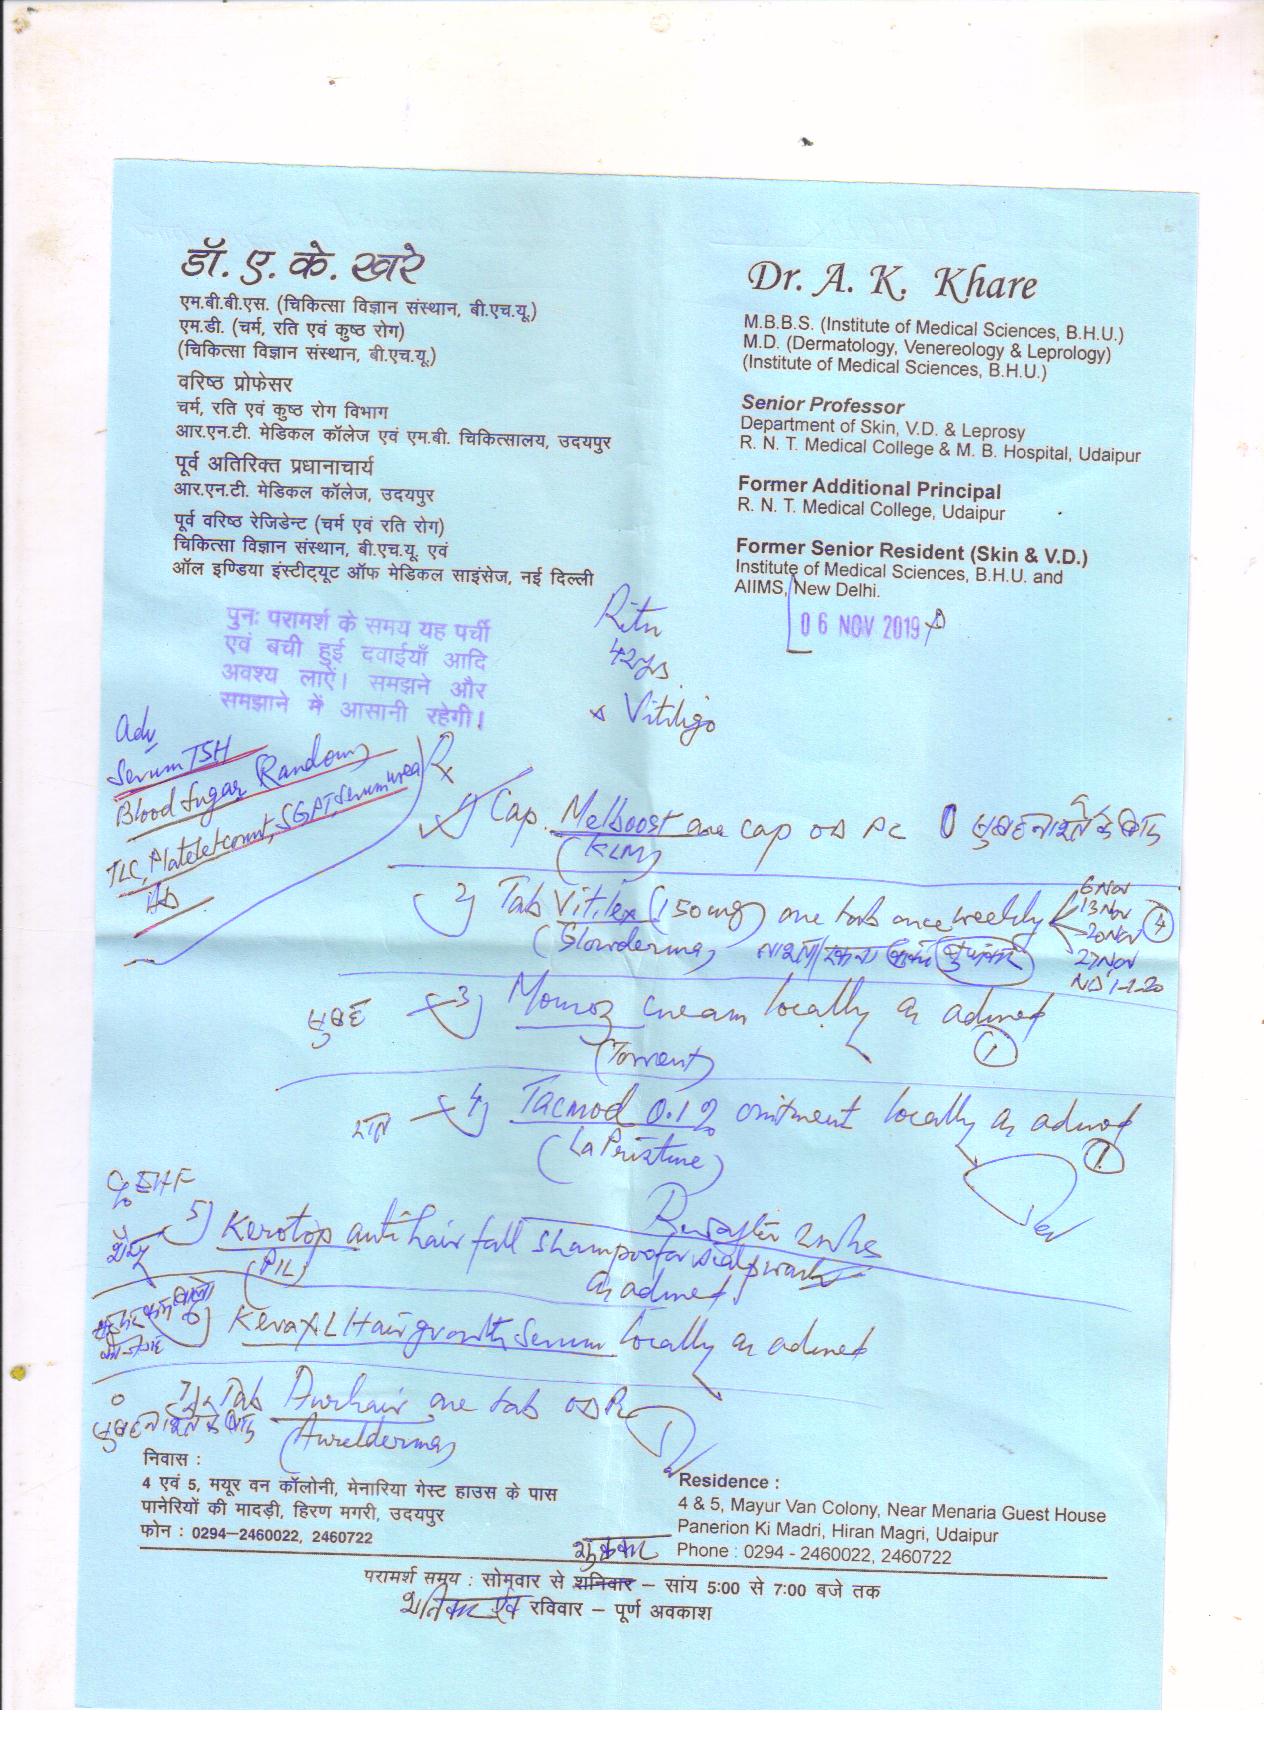 डॉ. ए. के. खरे
एम.बी.बी.एस. (चिकित्सा विज्ञान संस्थान, बी.एच.यू.)
एम.डी. (चर्म, रति एवं कुष्ठ रोग)
(चिकित्सा विज्ञान संस्थान, बी.एच.यू.)
वरिष्ठ प्रोफेसर
चर्म, रति एवं कुष्ठ रोग विभाग
आर.एन.टी. मेडिकल कॉलेज एवं एम.बी. चिकित्सालय, उदयपुर
पूर्व अतिरिक्त प्रधानाचार्य
आर.एन.टी. मेडिकल कॉलेज, उदयपुर
पूर्व वरिष्ठ रेजिडेन्ट (चर्म एवं रति रोग)
चिकित्सा विज्ञान संस्थान, बी.एच.यू. एवं
ऑल इण्डिया इंस्टीट्यूट ऑफ मेडिकल साइंसेज, नई दिल्ली
Dr. A. K. Khare
M.B.B.S. (Institute of Medical Sciences, B.H.U.)
M.D. (Dermatology, Venereology & Leprology)
(Institute of Medical Sciences, B.H.U.)
Senior Professor
Department of Skin, V.D. & Leprosy
R. N. T. Medical College & M. B. Hospital, Udaipur
Former Additional Principal
R. N. T. Medical College, Udaipur
Former Senior Resident (Skin & V.D.)
Institute of Medical Sciences, B.H.U. and
AIIMS, New Delhi.
06 NOV 2019
पुनः परामर्श के समय यह पर्ची
एवं बची हुई दवाईयाँ आदि
अवश्य लाऐं। समझने और
समझाने में आसानी रहेगी।
Ritu
42yrs
Vitiligo
Adv
Serum TSH
Blood Sugar (Random)
TLC, Platelet count, SGPT, Serum urea
Hb
Rx
1) Cap. Melboost one cap OD PC सुबह नाश्ते के बाद
(KLM)
2) Tab Vitilex (150mg) one tab once weekly
(Glowderma)
6 Nov
13 Nov
20 Nov
27 Nov
4
सुबह 3) Momoz cream locally as advised
(Torrent) 1
रात 4) Tacmod 0.1% ointment locally as advised
(La Pristine) 1
5) Kerotop anti hair fall shampoo for scalp wash
(PIL) as advised
6) Kera XL Hair growth Serum locally as advised
7) Tab Aurhair one tab OD PC
सुबह नाश्ते के बाद (Aurelderma)
निवास :
4 एवं 5, मयूर वन कॉलोनी, मेनारिया गेस्ट हाउस के पास
पानेरियों की मादड़ी, हिरण मगरी, उदयपुर
फोन : 0294-2460022, 2460722
Residence :
4 & 5, Mayur Van Colony, Near Menaria Guest House
Panerion Ki Madri, Hiran Magri, Udaipur
Phone : 0294 - 2460022, 2460722
शुक्रवार
परामर्श समय : सोमवार से शनिवार – सांय 5:00 से 7:00 बजे तक
शनिवार एवं रविवार – पूर्ण अवकाश